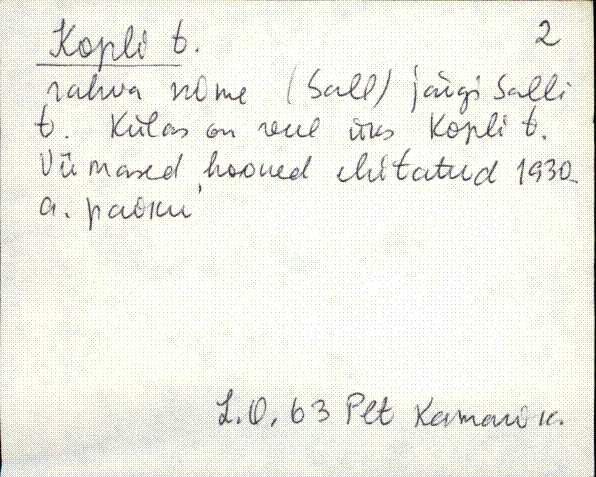 Kopli t. 2
rahva nime (Sall) järgi Salli
t. Külas on veel üks Kopli t.
Viimased hooned ehitatud 1930.
a. paiku
L.O, 63 Plt Kamari k.